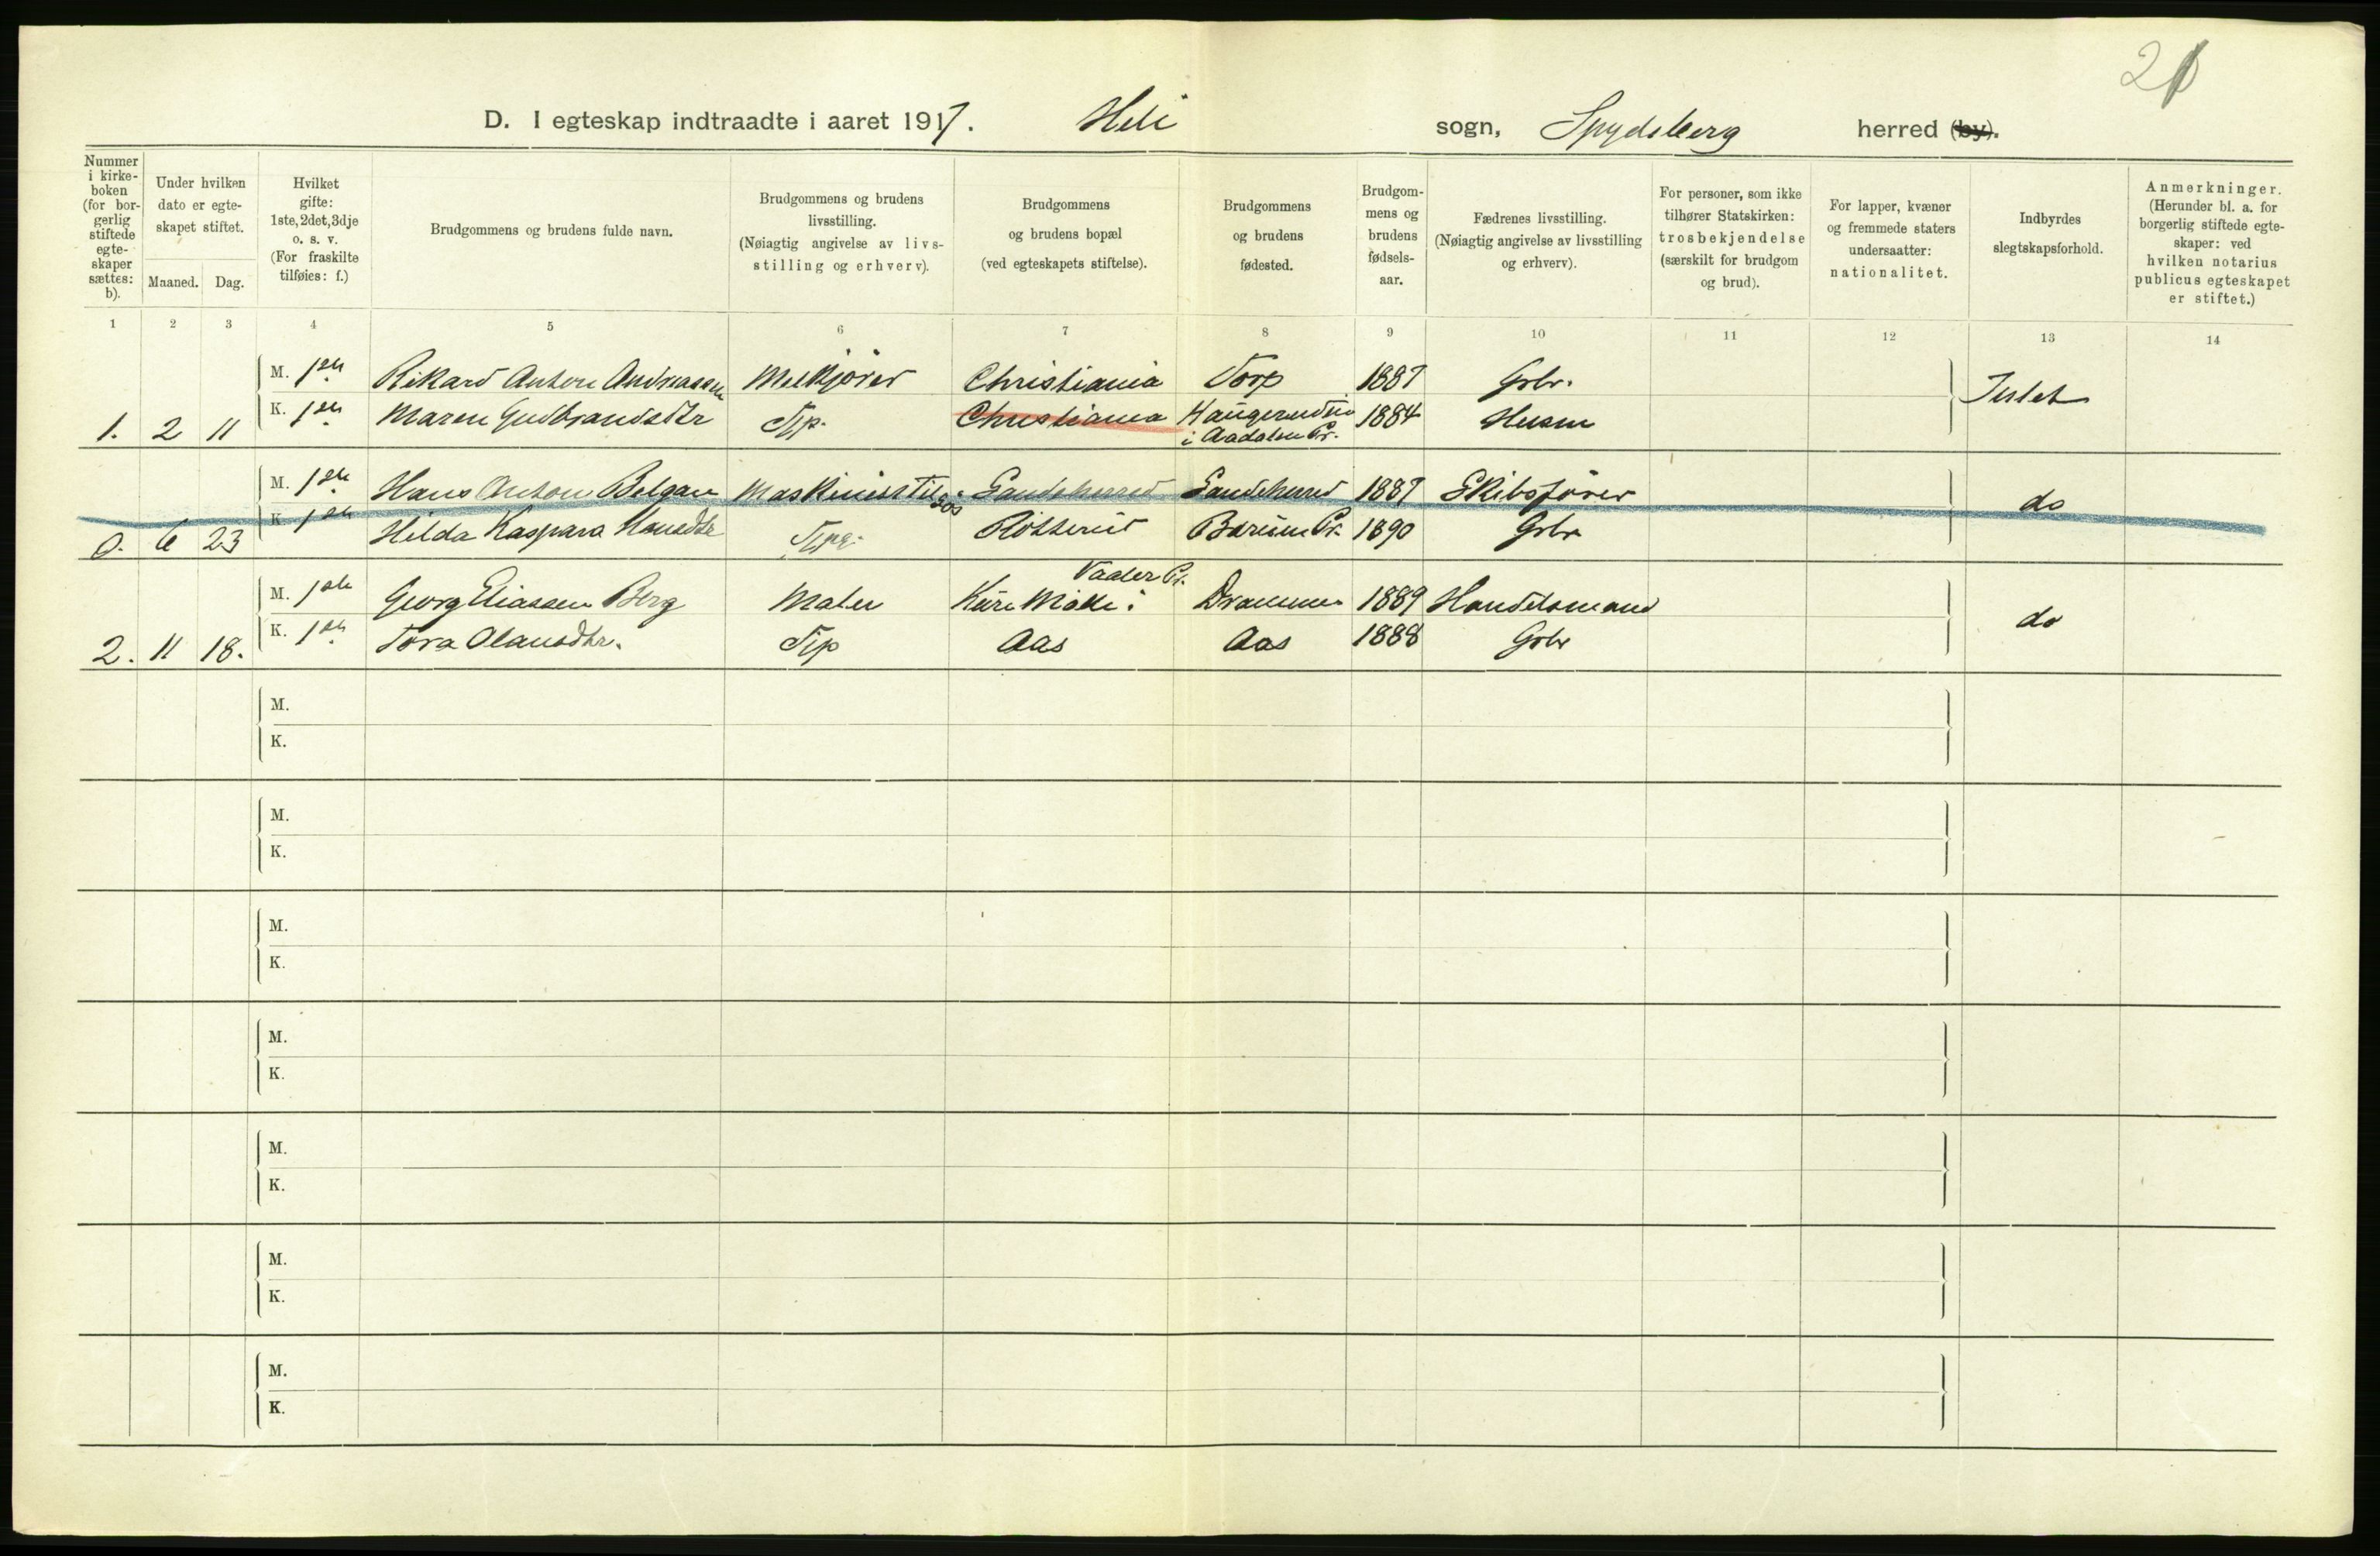 21
D. I egteskap indtraadte i aaret 1917. Heli sogn, Spydeberg herred (by).
Nummer i kirkeboken (for borgerlig stiftede egteskaper sættes: b).
Under hvilken dato er egteskapet stiftet.
Maaned. Dag.
Hvilket gifte: 1ste, 2det, 3dje o. s. v. (For fraskilte tilføies: f.)
Brudgommens og brudens fulde navn.
Brudgommens og brudens livsstilling. (Nøiagtig angivelse av livsstilling og erhverv).
Brudgommens og brudens bopæl (ved egteskapets stiftelse).
Brudgommens og brudens fødested.
Brudgommens og brudens fødselsaar.
Fædrenes livsstilling. (Nøiagtig angivelse av livsstilling og erhverv).
For personer, som ikke tilhører Statskirken: trosbekjendelse (særskilt for brudgom og brud).
For lapper, kvæner og fremmede staters undersaatter: nationalitet.
Indbyrdes slegtskapsforhold.
Anmerkninger. (Herunder bl. a. for borgerlig stiftede egteskaper: ved hvilken notarius publicus egteskapet er stiftet.)
1 2 3 4 5 6 7 8 9 10 11 12 13 14
M. 1ste Rikard Anton Andreassen Melkjører Christiania Torp 1887 Grbr. Intet
1. 2 11 K. 1ste Maren Gudbrandsdtr Tjp. Christiania 1884 Husm
i Aadalen Pr.
M. 1ste Hans Anton Maskinist Sandeherred Sandeherred 1887 Skibsfører do
0. 6 23 K. 1ste Hilda Kaspara Hansdtr Bærum Pr. 1890 Grbr
Vaaler Pr.
M. 1ste Georg Eliassen Berg Maler i Drammen 1889 Handelsmand do
2. 11 18. K. 1ste Tora Olausdtr. Tjp Aas Aas 1888 Grbr
M.
K.
M.
K.
M.
K.
M.
K.
M.
K.
M.
K.
M.
K.